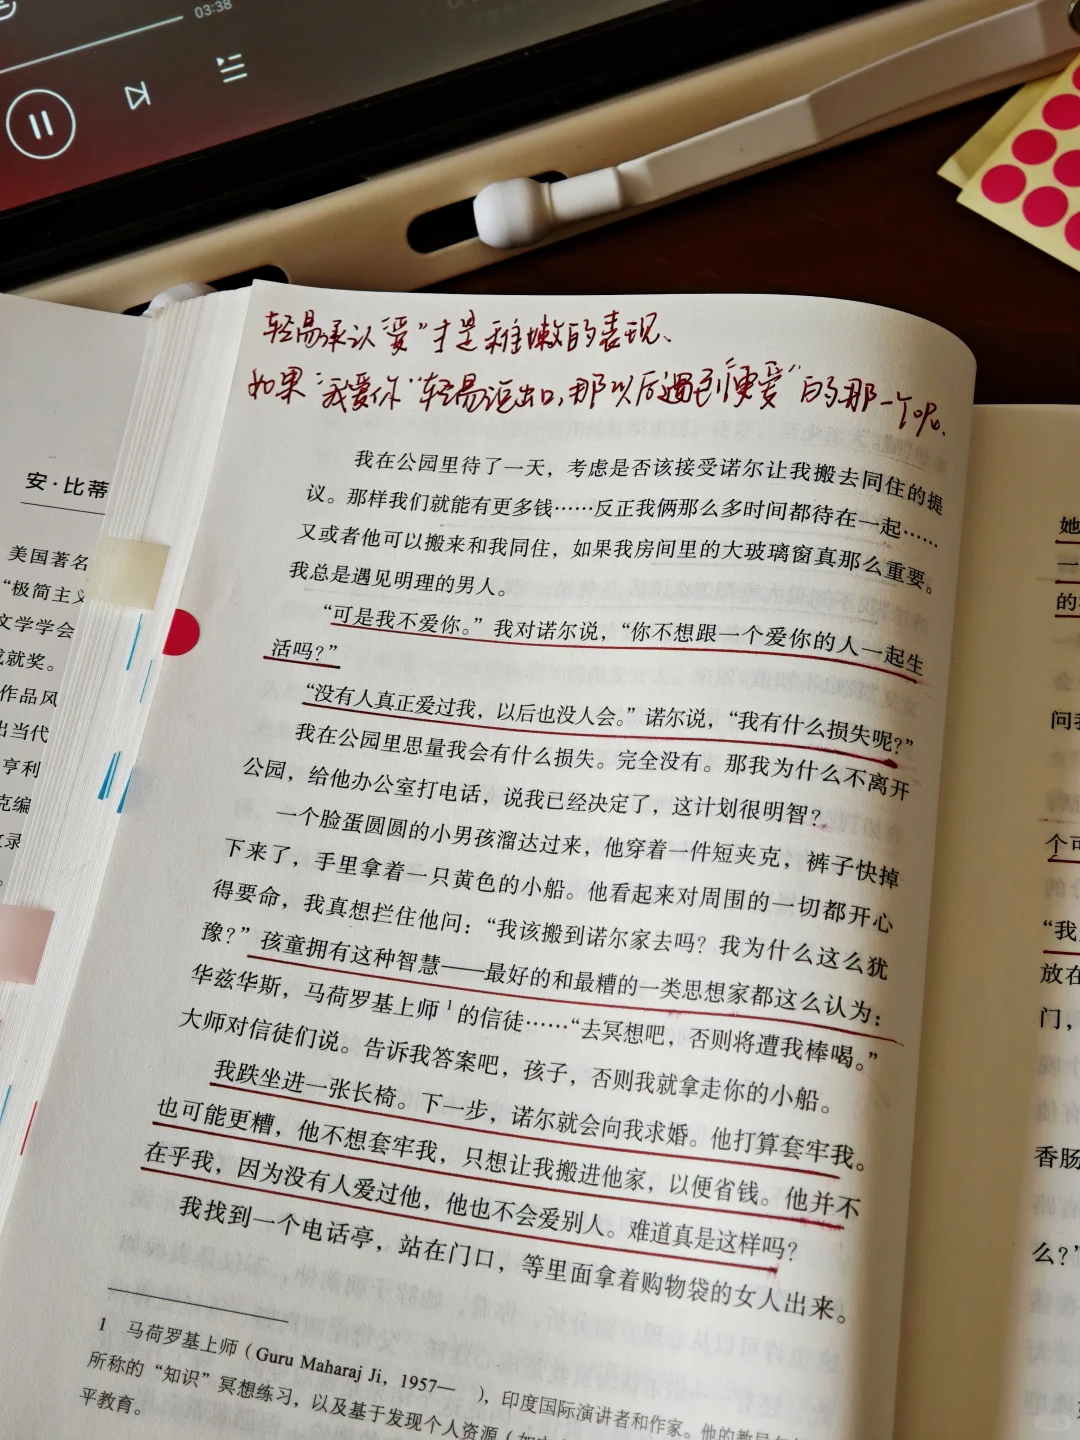 03:38
轻易承认“爱”才是稚嫩的表现、
如果“我爱你”轻易说出口,那以后遇到“更爱”的那一个呢、
我在公园里待了一天，考虑是否该接受诺尔让我搬去同住的提
议。那样我们就能有更多钱……反正我俩那么多时间都待在一起……
又或者他可以搬来和我同住，如果我房间里的大玻璃窗真那么重要。
我总是遇见明理的男人。
“可是我不爱你。”我对诺尔说，“你不想跟一个爱你的人一起生
活吗？”
“没有人真正爱过我，以后也没人会。”诺尔说，“我有什么损失呢？”
我在公园里思量我会有什么损失。完全没有。那我为什么不离开
公园，给他办公室打电话，说我已经决定了，这计划很明智？
一个脸蛋圆圆的小男孩溜达过来，他穿着一件短夹克，裤子快掉
下来了，手里拿着一只黄色的小船。他看起来对周围的一切都开心
得要命，我真想拦住他问：“我该搬到诺尔家去吗？我为什么这么犹
豫？”孩童拥有这种智慧——最好的和最糟的一类思想家都这么认为：
华兹华斯，马荷罗基上师1的信徒……“去冥想吧，否则将遭我棒喝。”
大师对信徒们说。告诉我答案吧，孩子，否则我就拿走你的小船。
我跌坐进一张长椅。下一步，诺尔就会向我求婚。他打算套牢我。
也可能更糟，他不想套牢我，只想让我搬进他家，以便省钱。他并不
在乎我，因为没有人爱过他，他也不会爱别人。难道真是这样吗？
我找到一个电话亭，站在门口，等里面拿着购物袋的女人出来。
1 马荷罗基上师（Guru Maharaj Ji，1957— ），印度国际演讲者和作家。
所称的“知识”冥想练习，以及基于发现个人资源
平教育。
安·比蒂
美国著名
“极简主义
文学学会
成就奖。
作品风
出当代
亨利
克编
收录
她
一
的
问我
个可
“我
放在
门，
香肠
么？”